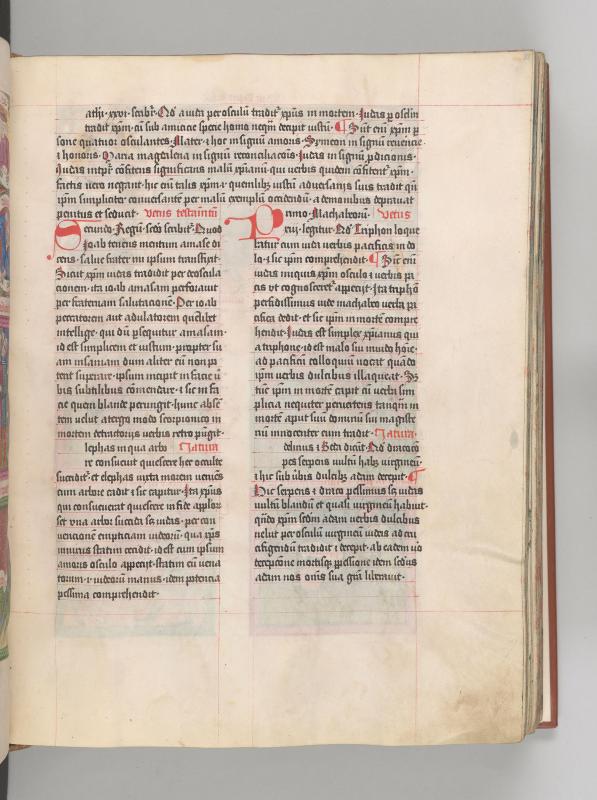 ath̄ · xxvi · scrib̄r · Qd̄ a iuda per osculū tradit xp̄us in mortem · Iudas p̱ osclm̄
tradit xp̄m · cū sub amicicie specie homo neqm̄ decipit iustū · ¶ Sūt eni xp̄m p̱
sone quatuor osculantes · Mater · ⁊ hoc in signū amoris · Symeon in signū reuēcie
⁊ honoris · Maria magdalena in signū reconciliacōis · Iudas in signū p̱dicionis ·
Iudas int̄pr̄ cōfitens significans malū xp̄ianū qui verbis quidem cōfitent̄ xp̄m ·
factis uero negant · hic eni talis xp̄m ⁊ quemlibȝ iustū aduersarijs suis tradit qn̄
ip̄m simpliciter conuersante per malū exemplū occidendū · a demonibus depriuat
penitus et seducit · Vetus testamentū
Secundo · Regū · scd̄o scribit̄ · Quod
Ioab tenens mentum amase di
cens · salue frater mi ipsum transfixit ·
Sicut xp̄m iudas tradidit per deoscula
cionem · ita ioab amasam perforauit
per fraternam salutacionē · Per ioab
peccatorem aut adulatorem quēlibet
intellige · qui dū p̱sequitur amasam ·
id est simplicem et iustum · propter su
am insaniam dum aliter eū non po
tent superare · ipsum incipit in facie ū
bis subtilibus cōmendare · ⁊ sic in fa
cie quem blande perungit · hunc absē
tem uelut atergo modo scorpionico in
mortem detractorijs verbis retro pūgit ·
lephas in qua arbo Natura
re consueuit quiescere her occulte
succidit̄ · et elephas iuxta morem ueniēs
cum arbore cadit ⁊ sic capitur · Ita xp̄us
qui consueuerat quiescere in fide apl̄or
scȝ vna arbor succisa scȝ iudas · per con
uencionē empticiam iudeorū · qua xp̄s
innixus statim cecidit · id est cum ipsum
amoris osculo appecijt · statim eū uena
torum · ⁊ · iudeorū manus · idem potencia
pessima comprehendit ·
Primo · Machabeorū · Vetus
xiij · legitur · Qd̄ Triphon loque
batur cum iuda verbis pacificis in do
lo · ⁊ sic ip̄m comprehendit · ¶ Sic eni
iudas iniqus xp̄m osculo ⁊ verbis pa
cis vt cognosceret̄ appecijt · Ita triphō
perfidissimus iude machabeo verba pa
cifica dedit · et sic ip̄m in mortē compre
hendit · Iudas est simplex xp̄ianus qui
a triphone · id est malo sui mundo hoīe ·
ad pacificū colloquiū uocat̄ quādo
ip̄m verbis dulcibus illaqueat · Sȝ
tūc ip̄m in mortē capit cū verba sim
plicia nequiter peruertens tanqm̄ in
mortē aput suū domnū sui magistr
um innocenter eum tradit · Natura ·
delinus ⁊ Beda dicūt · Qd̄ dracocē
pes serpens uultū habȝ uirgineū ·
⁊ hic sub ūbis dulcibȝ adam decepit · ¶
Hic serpens ⁊ draco pessimus scȝ iudas
uultū blandū et quasi uirgineū habuit ·
qn̄do xp̄m scd̄m adam verbis dulcibus
velut per osculū uirgineū iudeis ad cru
cifigendū tradidit ⁊ decepit · ab eadem vō
decepcōne mortisqȝ p̱pessione idem scd̄us
adam nos om̄s sua grā̄ liberauit ·